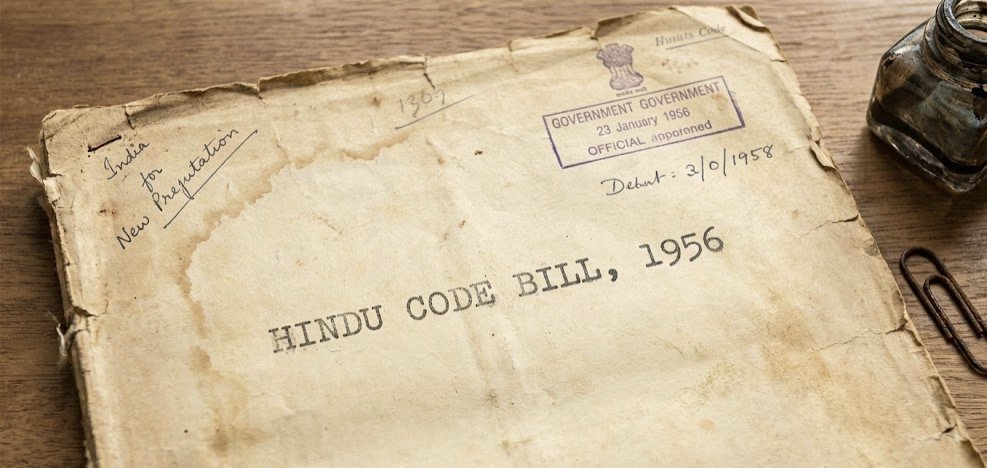 India
for
New Prejutation
Code
GOVERNMENT GOVERNMENT
23 January 1956
OFFICIAL apporaned
Debut: 3/0/1958
HINDU CODE BILL, 1956